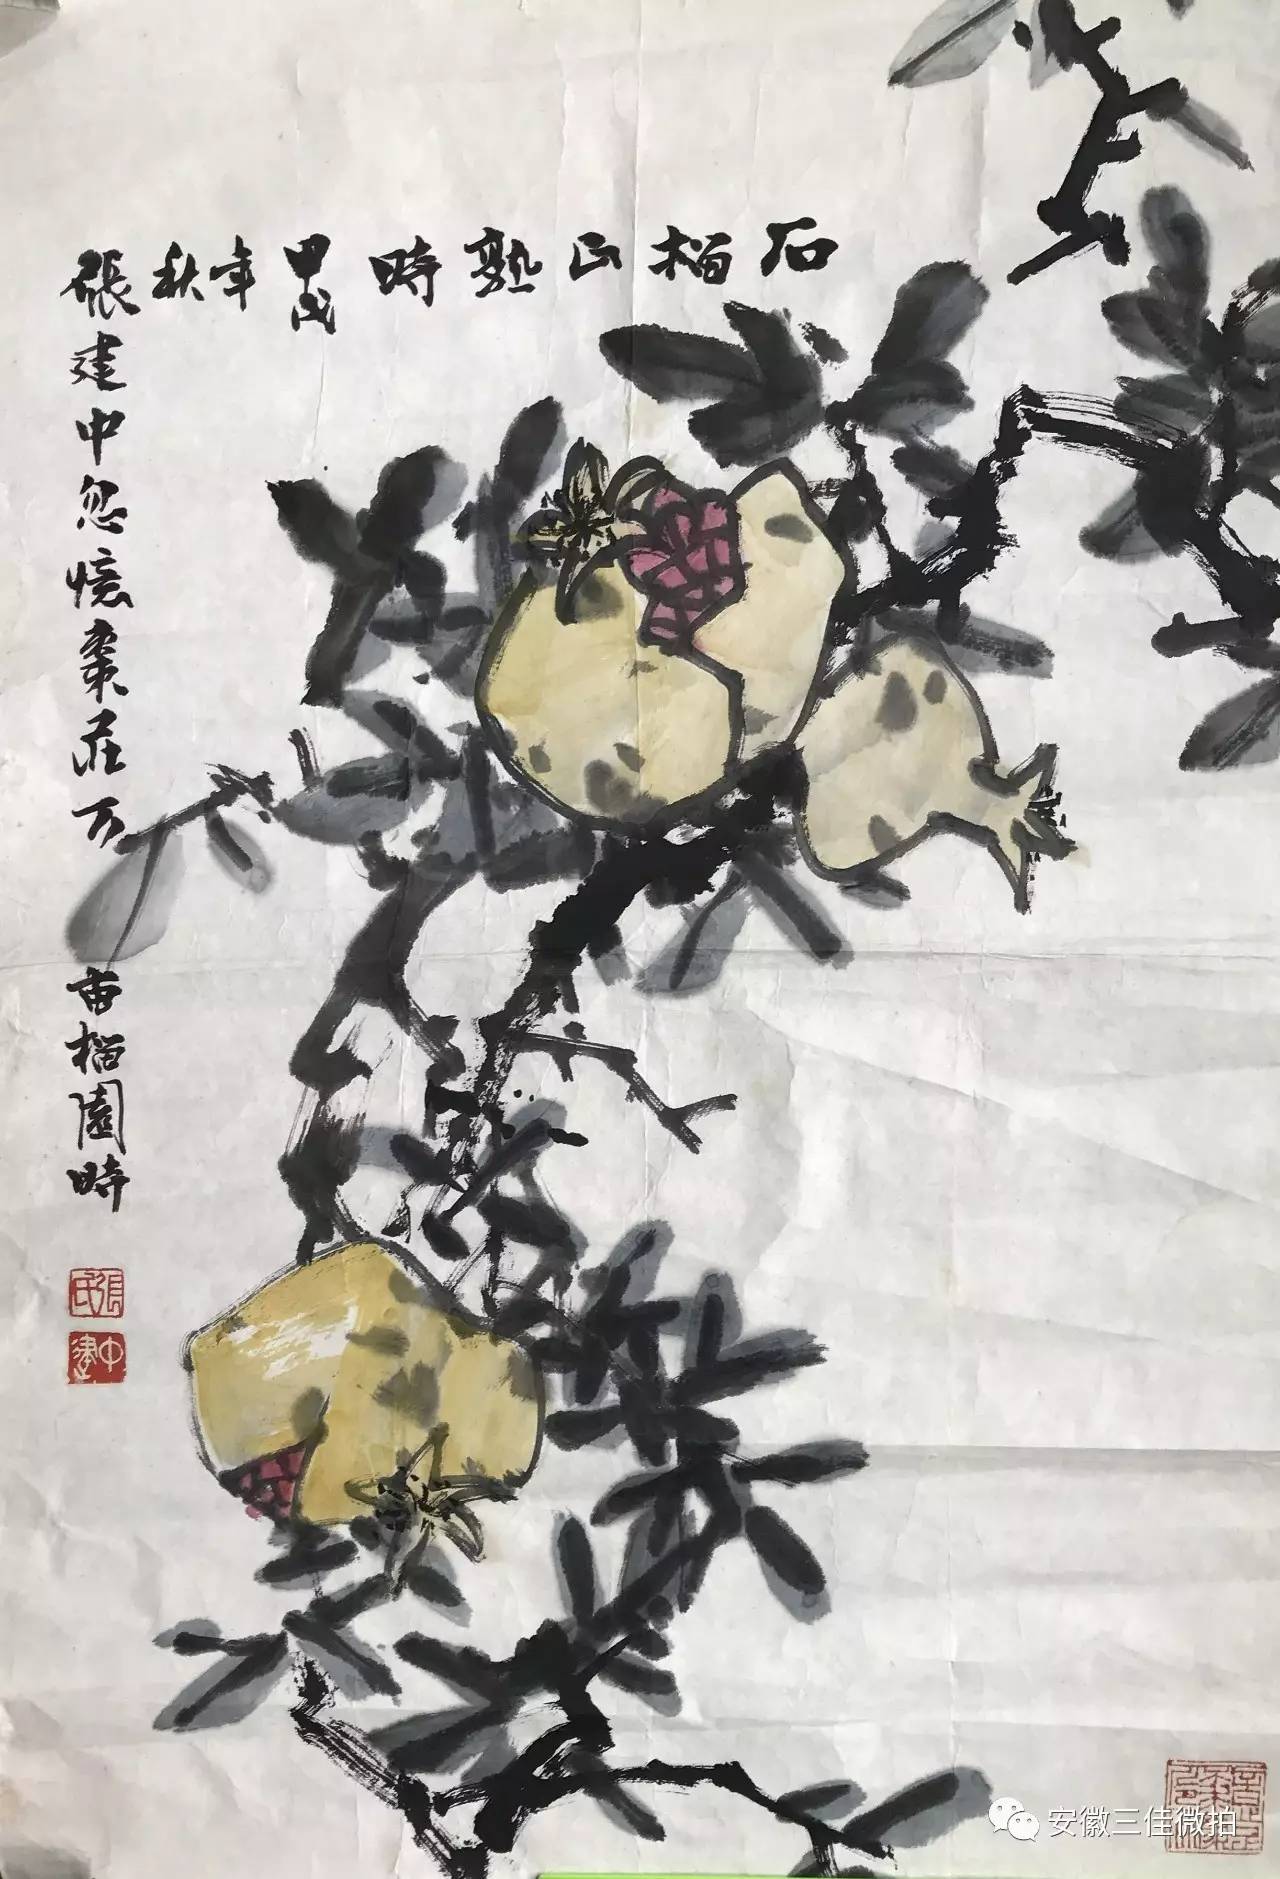 石榴正熟時
甲戌
年
秋
張建中忽憶棗莊万
亩榴園時
張氏
建中
安徽三佳微拍